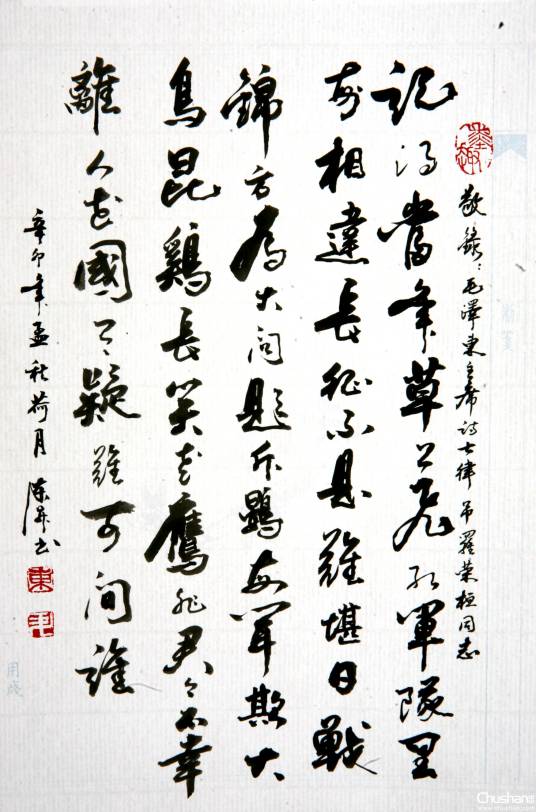 敬錄：毛澤東主席詩七律 吊羅榮桓同志
記得當年草上飛紅軍隊里
每相違長征不是難堪日戰
錦方為大問題斥鷃每聞欺大
鳥昆鷄長笑老鷹非君今不幸
離人世國有疑難可問誰
辛卯年孟秋荷月 陈书
Chushan